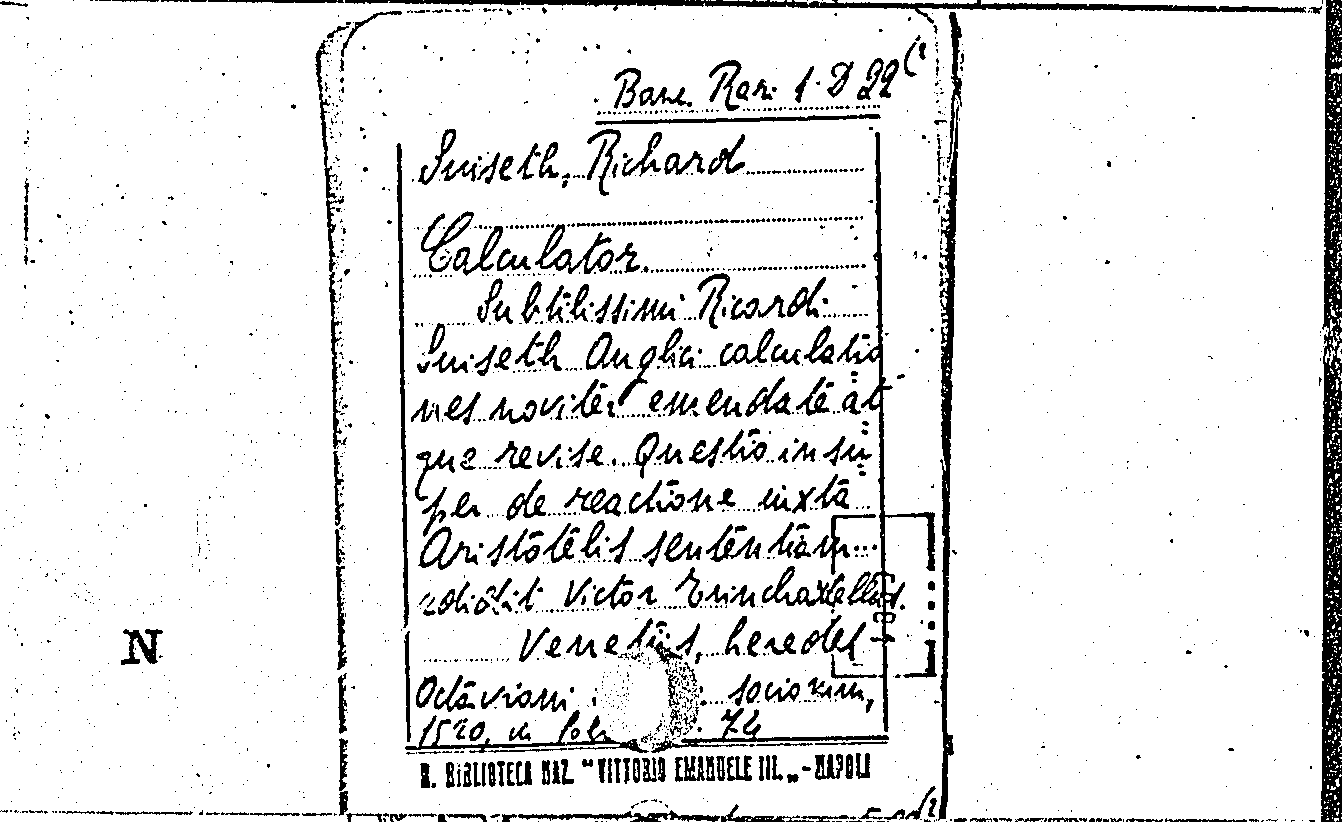 Banc. Rari 1. D 22(1
Suiseth, Richard
Calculator.
Subtilissimi Ricardi
Suiseth Anglici calculatio
nes noviter emendate at
que revise. Questio insu
per de reactione iuxta
Aristotelis sententiam...
edidit Victor Trinchavellus.
Venetiis, heredes
Octaviani sociorum,
1520, in fol. 74
N
R. BIBLIOTECA NAZ. "VITTORIO EMANUELE III. „ - NAPOLI